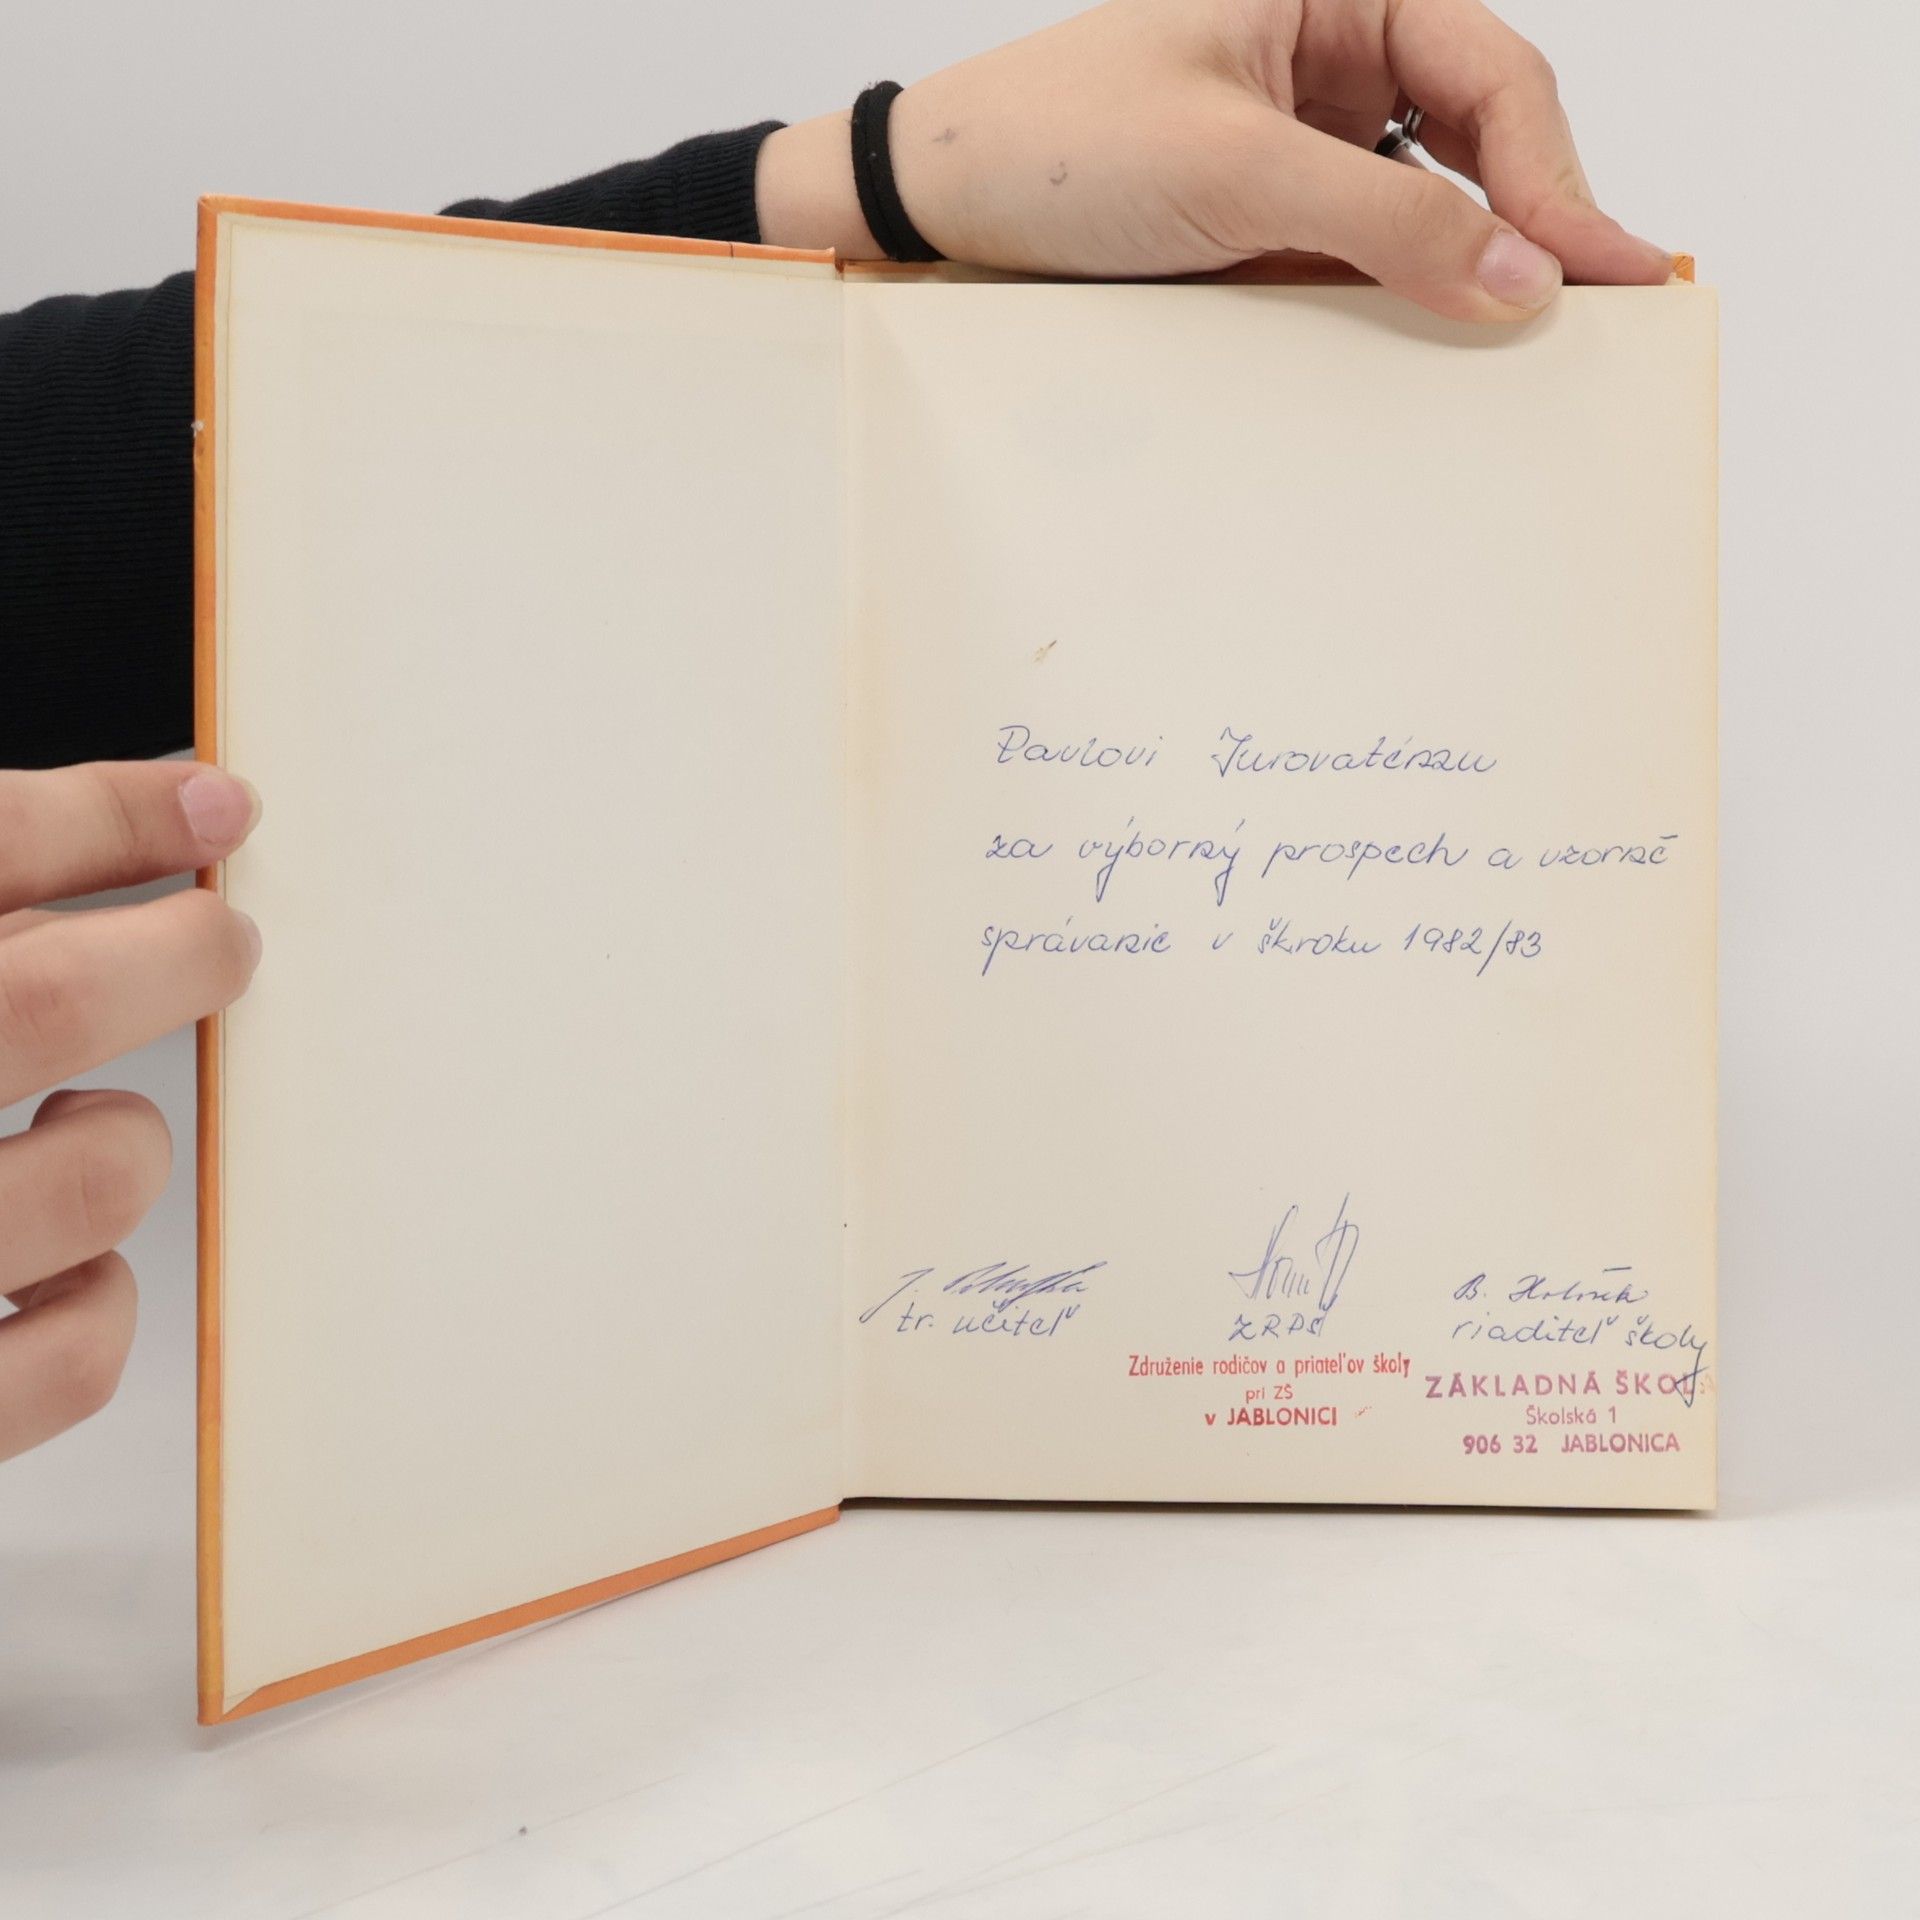 Pavlovi Jurovatému
za výborný prospech a vzorné
správanie v šk.roku 1982/83
tr. učiteľ
ZRPŠ
B.
riaditeľ školy
Združenie rodičov a priateľov školy
pri ZŠ
v JABLONICI
ZÁKLADNÁ ŠKOLA
Školská 1
906 32 JABLONICA